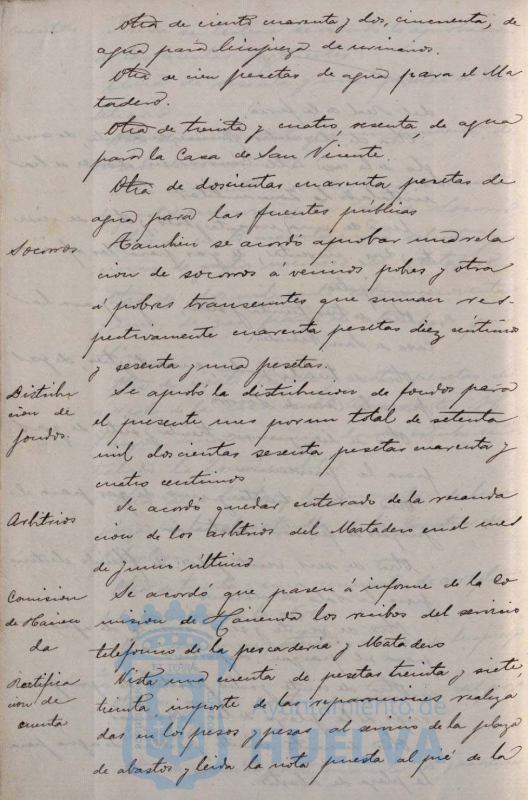 Otra de ciento cuarenta y dos, cincuenta, de
agua para limpieza de urinarios.
Otra de cien pesetas de agua para el Ma-
tadero.
Otra de treinta y cuatro, sesenta, de agua
para la Casa de San Vicente.
Otra de doscientas cuarenta pesetas de
agua para las fuentes públicas
Socorros
Tambien se acordó aprobar una rela
cion de socorros á vecinos pobres y otra
á pobres transeuntes que suman res-
pectivamente cuarenta pesetas diez céntimos
y sesenta y una pesetas.
Distribu
cion de
fondos.
Se aprobó la distribucion de fondos para
el presente mes por un total de setenta
mil doscientas sesenta pesetas cuarenta y
cuatro centimos
Arbitrios
Se acordó quedar enterado de la recauda
cion de los arbitrios del Matadero en el mes
de junio último
Comision
de Hacien
da
Se acordó que pasen á informe de la Co
mision de Hacienda los recibos del servicio
telefonico de la pescaderia y Matadero
Rectifica
cion de
cuenta
Vista una cuenta de pesetas treinta y siete,
treinta importe de las reparaciones realiza
das en los pesos y pesas al servicio de la plaza
de abastos y leida la nota puesta al pié de la
Ayuntamiento de
HUELVA